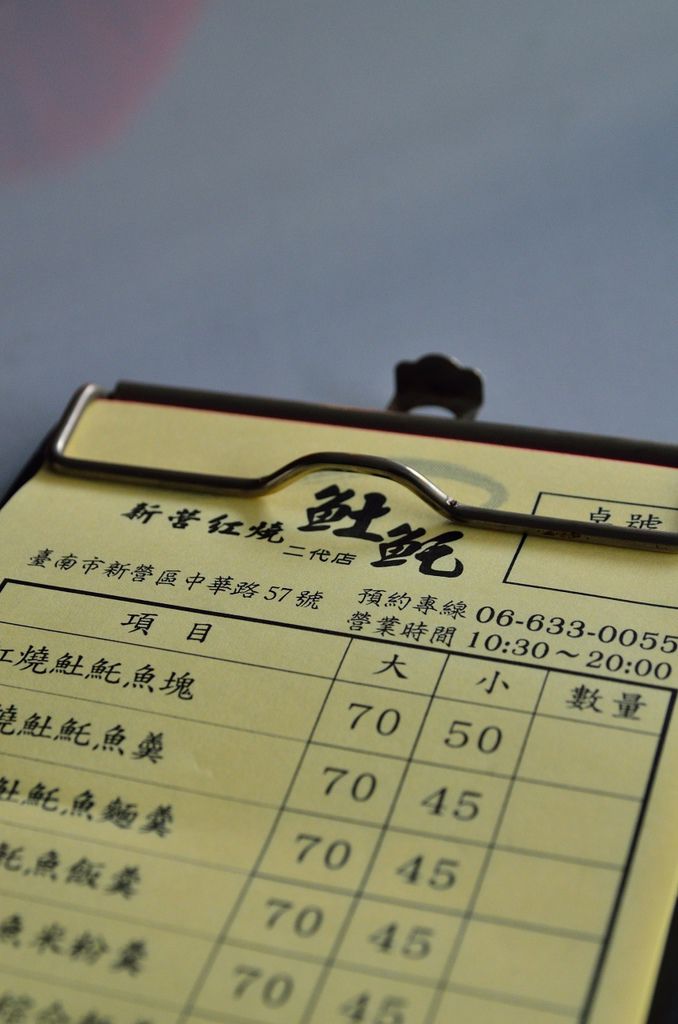 新營紅燒魠魠
二代店
卓號
臺南市新營區中華路57號
預約專線 06-633-0055
營業時間 10:30～20:00
項目 大 小 數量
燒魠魠魚塊 70 50
魠魠魚羹 70 45
魠魚麵羹 70 45
魚飯羹 70 45
魚米粉羹 70 45
綜合